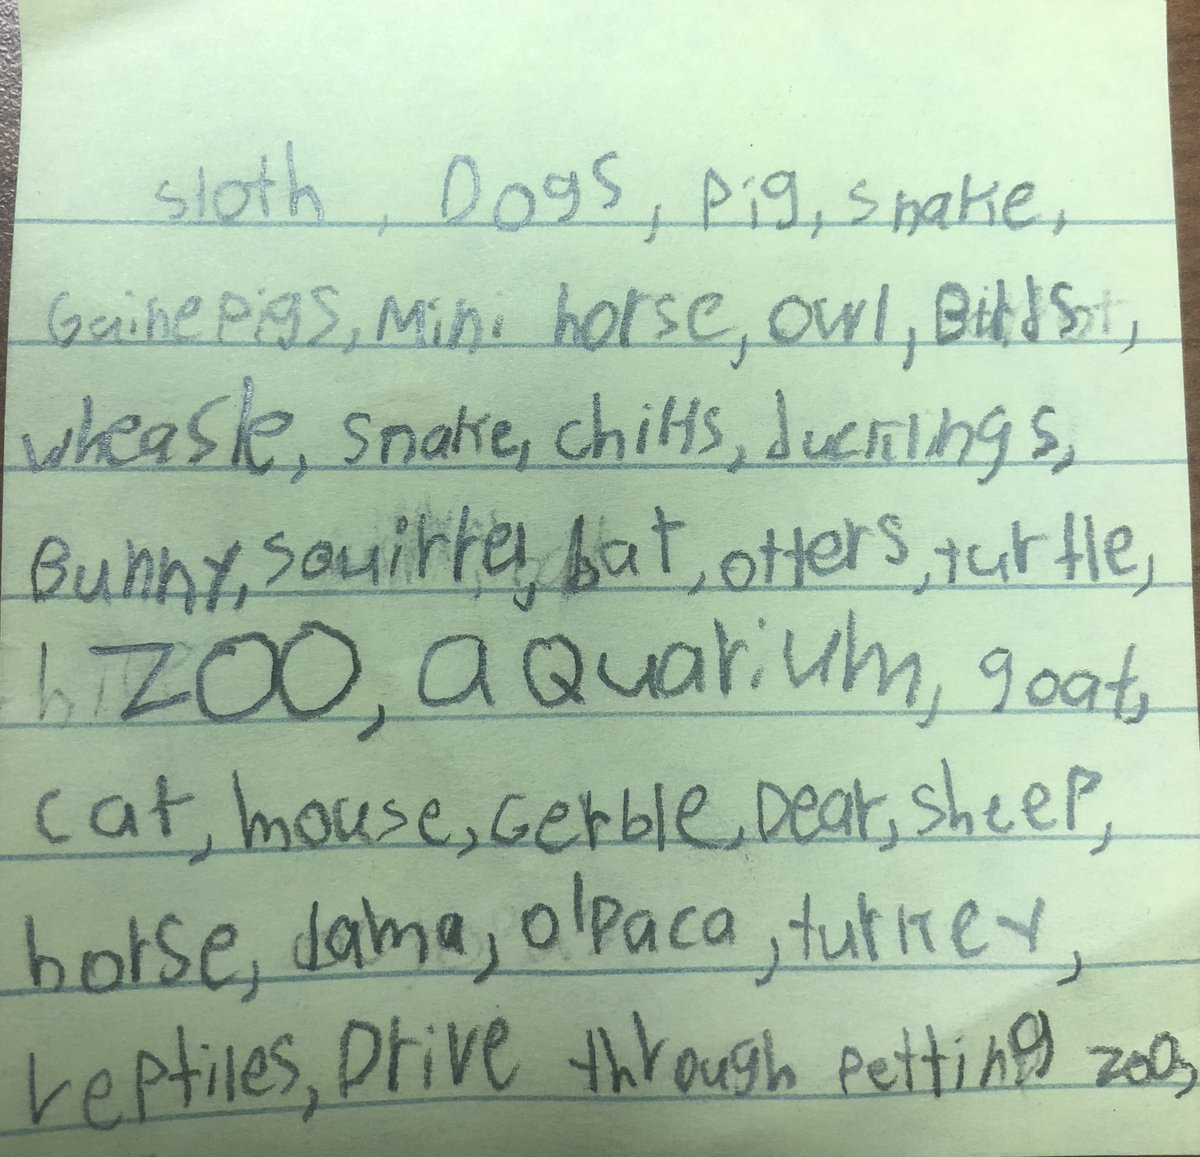 sloth, Dogs, pig, snake,
Gainepigs, Mini horse, owl, Birds,
wheasle, snake, chiks, ducklings,
Bunny, squirrel, bat, otters, turtle,
ZOO, aquarium, goat,
cat, mouse, Gerble, Dear, sheep,
horse, lama, alpaca, turkey,
reptiles, Drive through petting zoo,